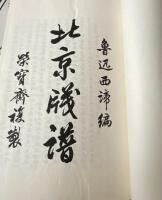 魯迅西諦編
北京牋譜
榮寶齋複製